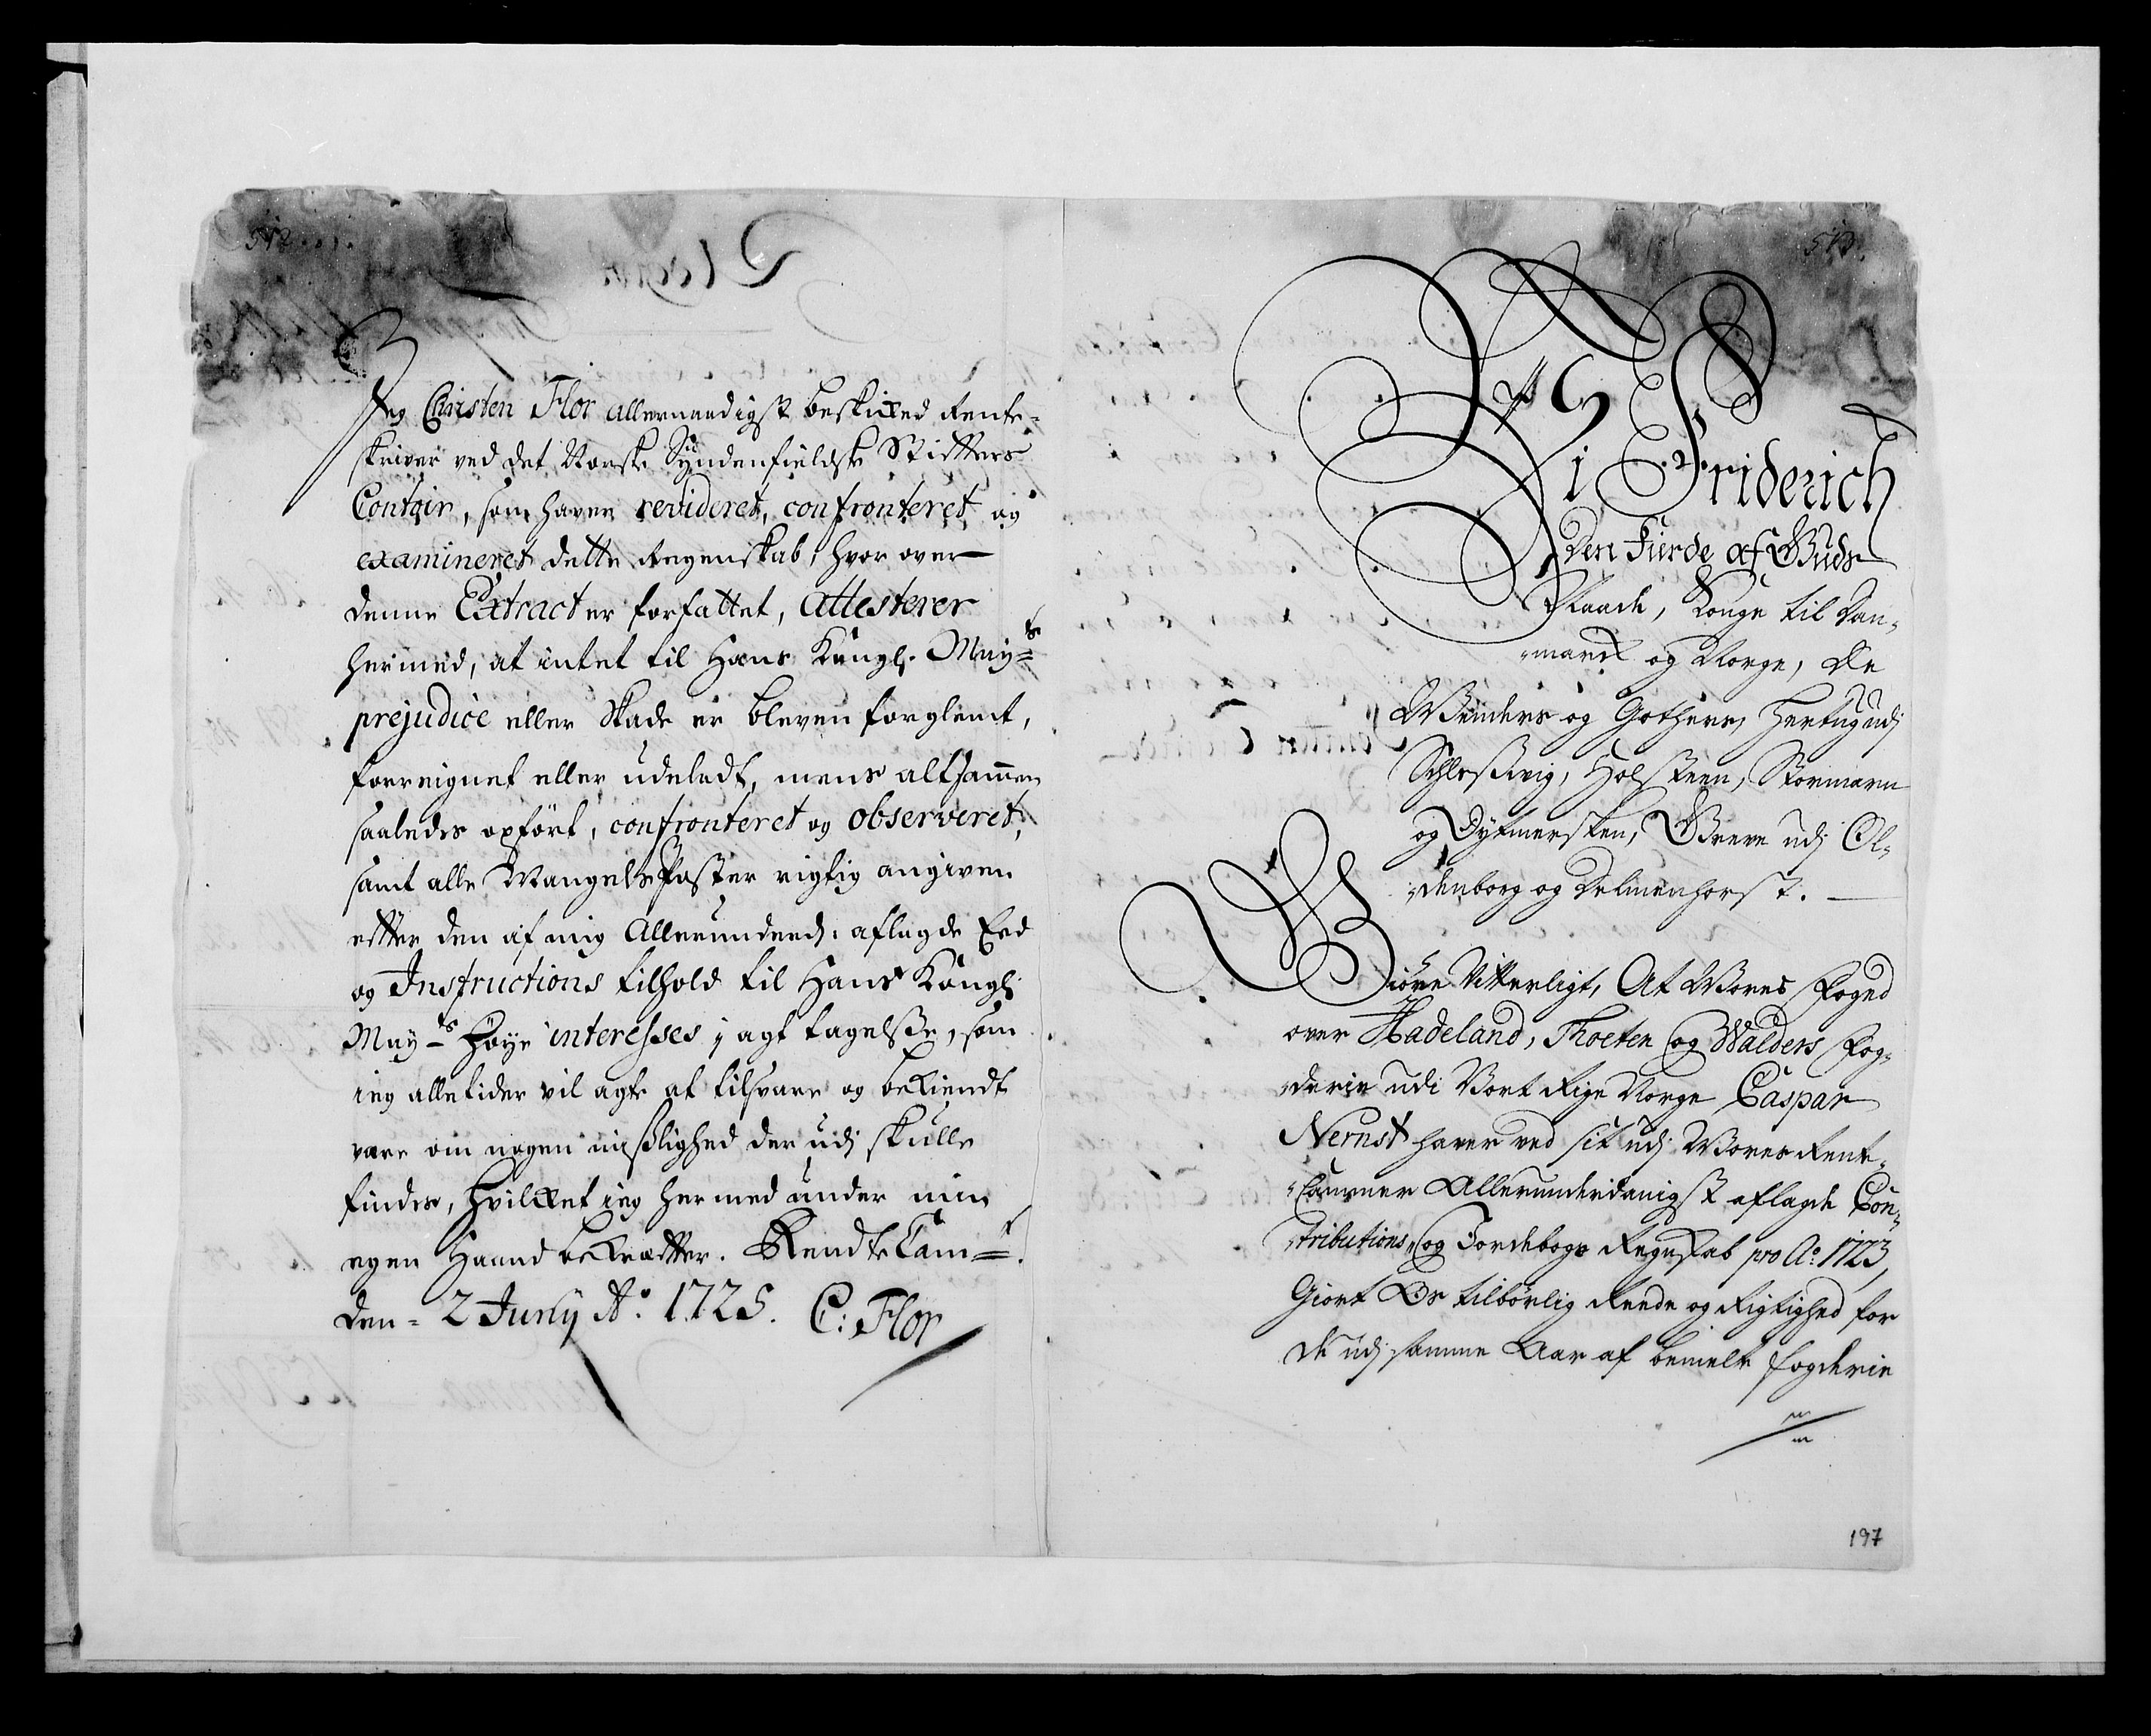 542
Jeg Christen Flor allernaadigst beskikked Rente-
skriver ved det Norske Syndenfieldske Stifters
Contoir, som haver revideret, confronteret og
examineret dette Regenskab, hvor over
denne Extract er forfattet, Attesterer
hermed, at intet til Hans Kongl. May=ts
prejudice eller Skade er bleven forglemt,
forreignet eller udeladt, mens altsammen
saaledes opført, confronteret og observeret,
samt alle Mangels Poster rigtig angiven
efter den af mig Allerunderd: aflagde Eed
og Instructions tilhold til Hans Kongl:
May-ts Høye interesses j agt tagelsse, som
ieg alletider vil agte at tilsvare og bekiendt
være om nogen misslighed der udj skulle
findes, Hvilket ieg hermed under min
egen Haand bekræfter. Rendte Cam=r.
den = 2 Junij Ao. 1725. C: Flor
543.
Vi Friderich
Den Fierde af Guds
Naade, Konge til Dan-
-marck og Norge, de
Wenders og Gothers, Hertug udj
Schlesswig, Holsteen, Stormarn
og Dytmersken, Greve udj Ol-
-denborg og Delmenhorst.
Giøre Vitterligt, At Vores Foged
over Hadeland, Thoeten og Walders Fog-
-derie udi Vort Rige Norge Caspar
Nernst haver ved sit udj Vores Rente-
-Cammer Allerunderdanigst aflagde Con-
-tributions- og Jordebogs Regnskab pro Ao. 1723,
Giort Os tilbørlig Reede og Rigtighed for
de udj samme Aar af bemelte Fogderie
197